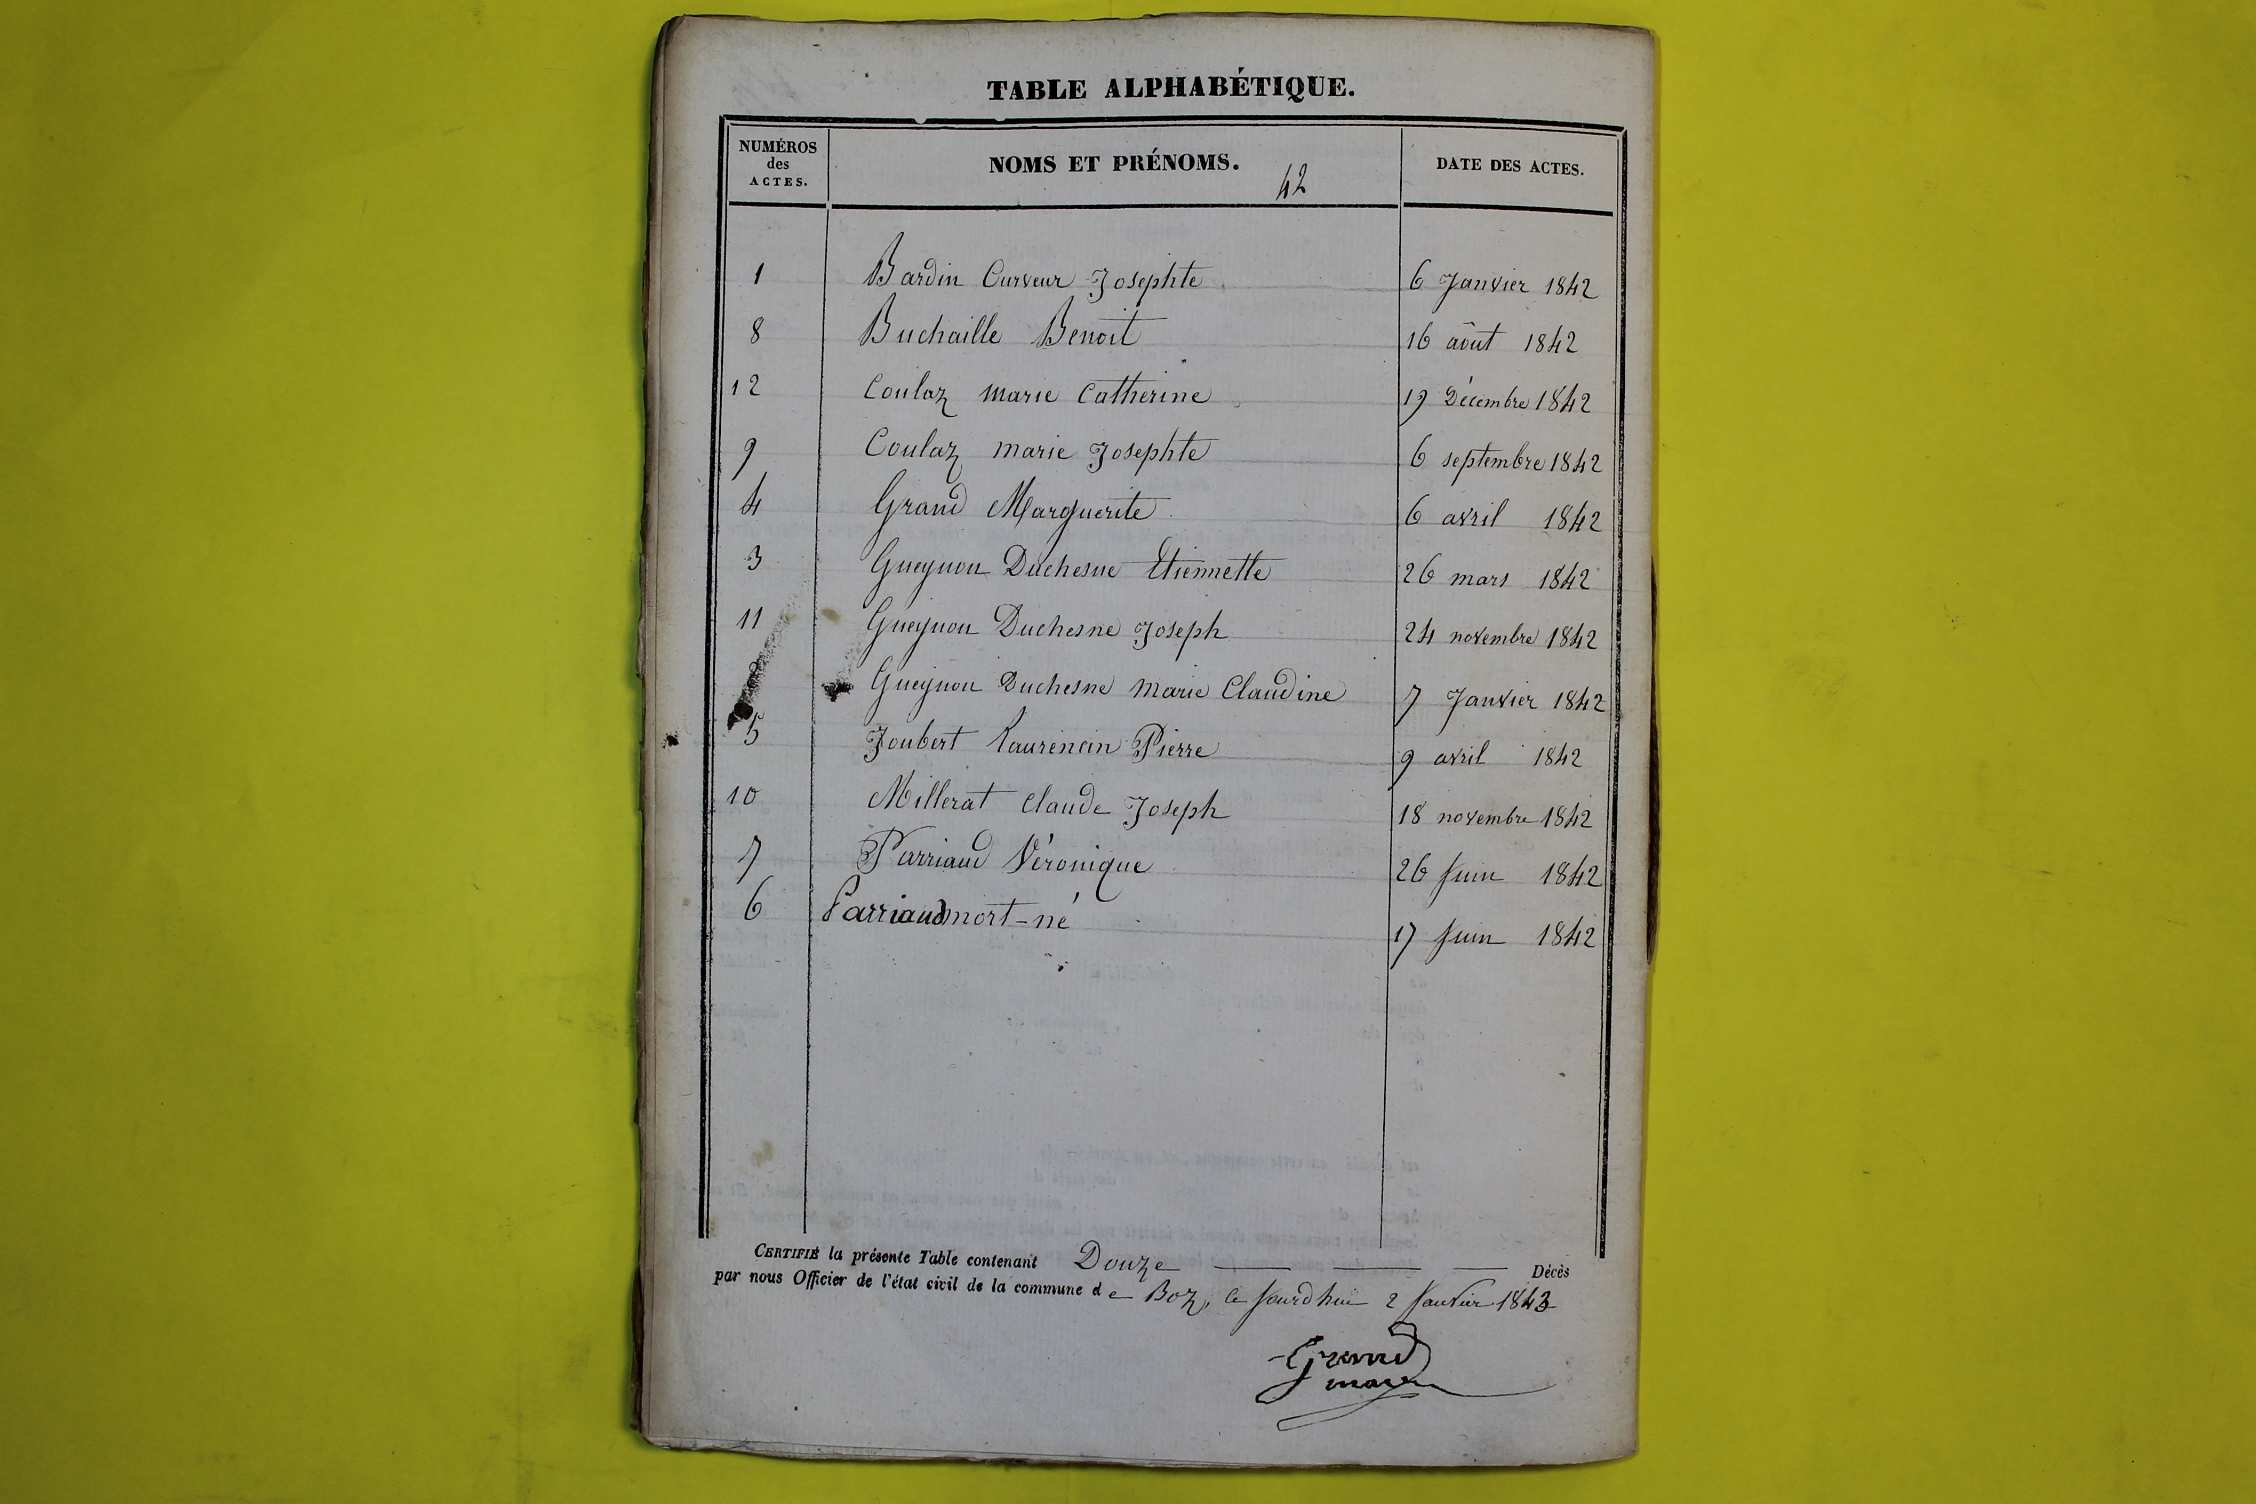 TABLE ALPHABÉTIQUE.
NUMÉROS
des
ACTES.
NOMS ET PRÉNOMS.
42
DATE DES ACTES.
1 Bardin Curveur Josephte 6 Janvier 1842
8 Buchaille Benoit 16 août 1842
12 Coulaz marie Catherine 19 Décembre 1842
9 Coulaz marie Josephte 6 septembre 1842
4 Grand Marguerite 6 avril 1842
3 Gueynon Duchesne Etiennette 26 mars 1842
11 Gueynon Duchesne Joseph 24 novembre 1842
2 Gueynon Duchesne marie Claudine 7 Janvier 1842
5 Joubert Laurencin Pierre 9 avril 1842
10 Millerat claude Joseph 18 novembre 1842
7 Parriaud Véronique 26 Juin 1842
6 Parriaud mort-né 17 Juin 1842
CERTIFIÉ la présente Table contenant Douze Décès
par nous Officier de l'état civil de la commune de Boz, ce Jourd'hui 2 Janvier 1843
Grand
maire